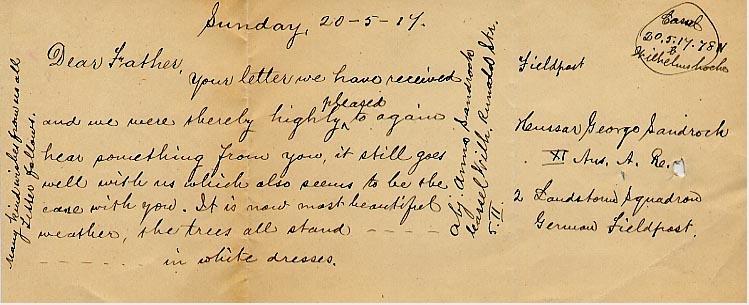 Sunday, 20-5-17.
Dear Father,
Your letter we have received
and we were thereby highly pleased to again
hear something from you, it still goes
well with us which also seems to be the
case with you. It is now most beautiful
weather, the trees all stand - - - - -
- - - - - - - in white dresses.
Many kind wishes from us all
Letter follows.
Abj. Anna Sandrock
Cassel Wilh. Str.
5. II.
Cassel
20.5.17. 78N
Wilhelmshoehe
Fieldpost
Hussar George Sandroch
XI Aus. A. Re.
2 Landstorm Squadron
German Fieldpost.